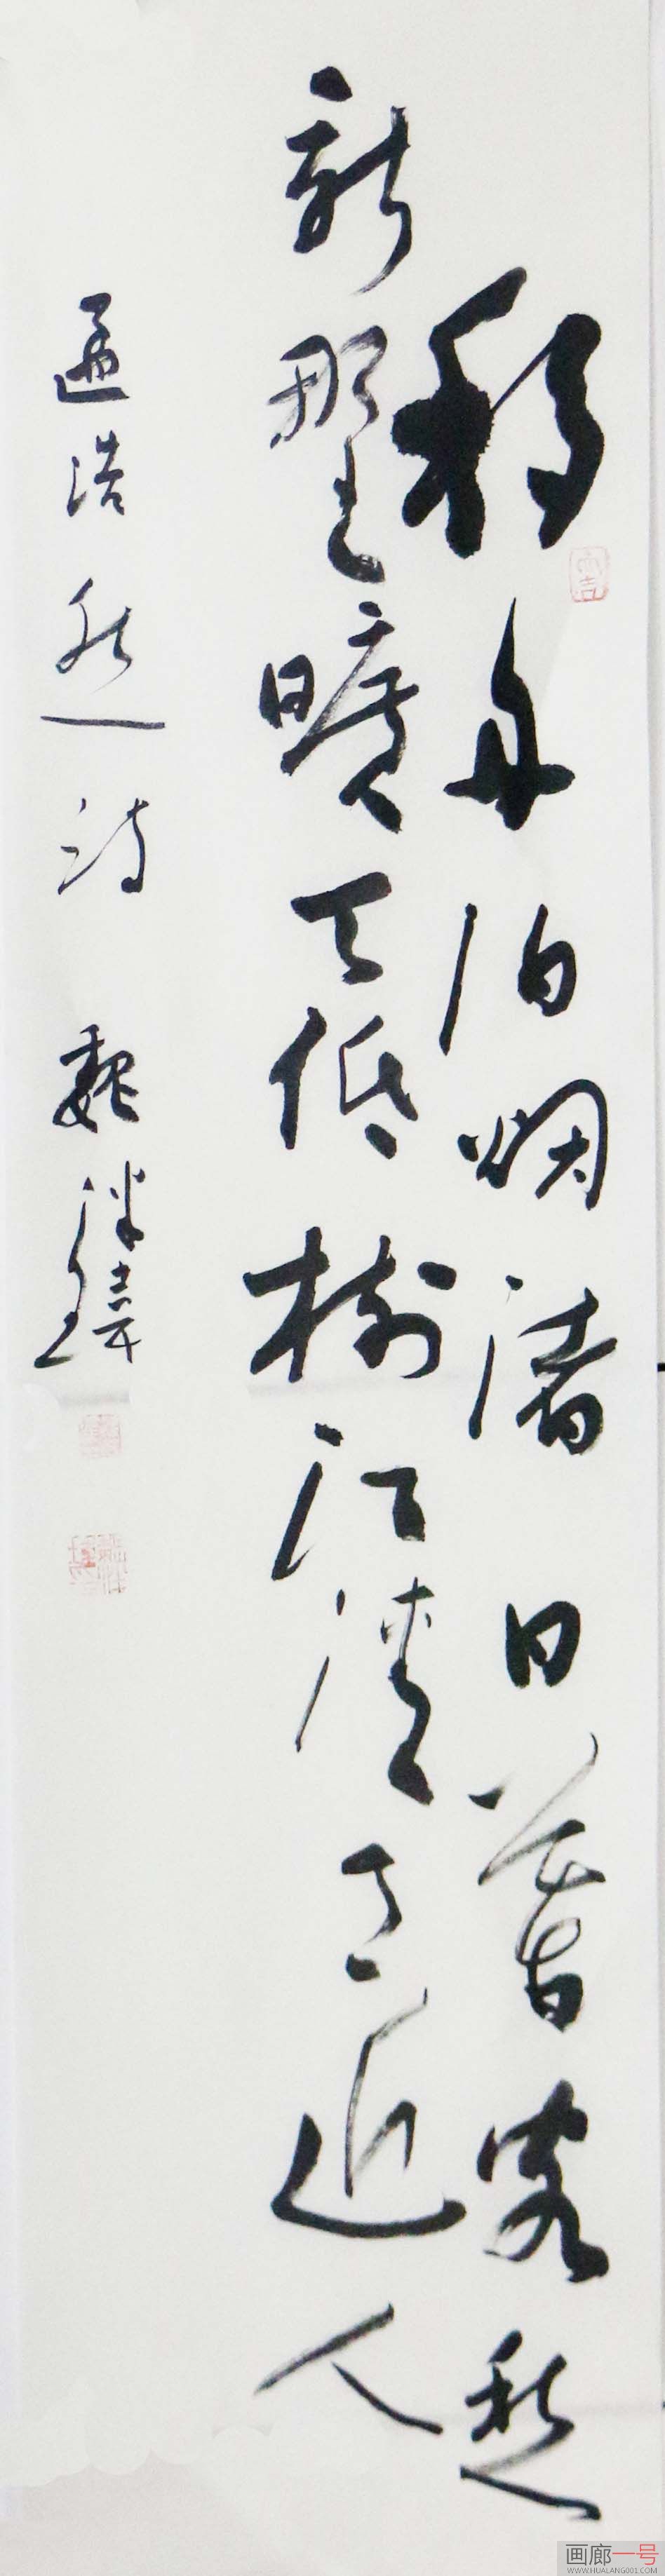 移舟泊烟渚日暮客愁
新野旷天低树江清月近人
孟浩然诗 魏
画廊一号
WWW.HUALANG001.COM